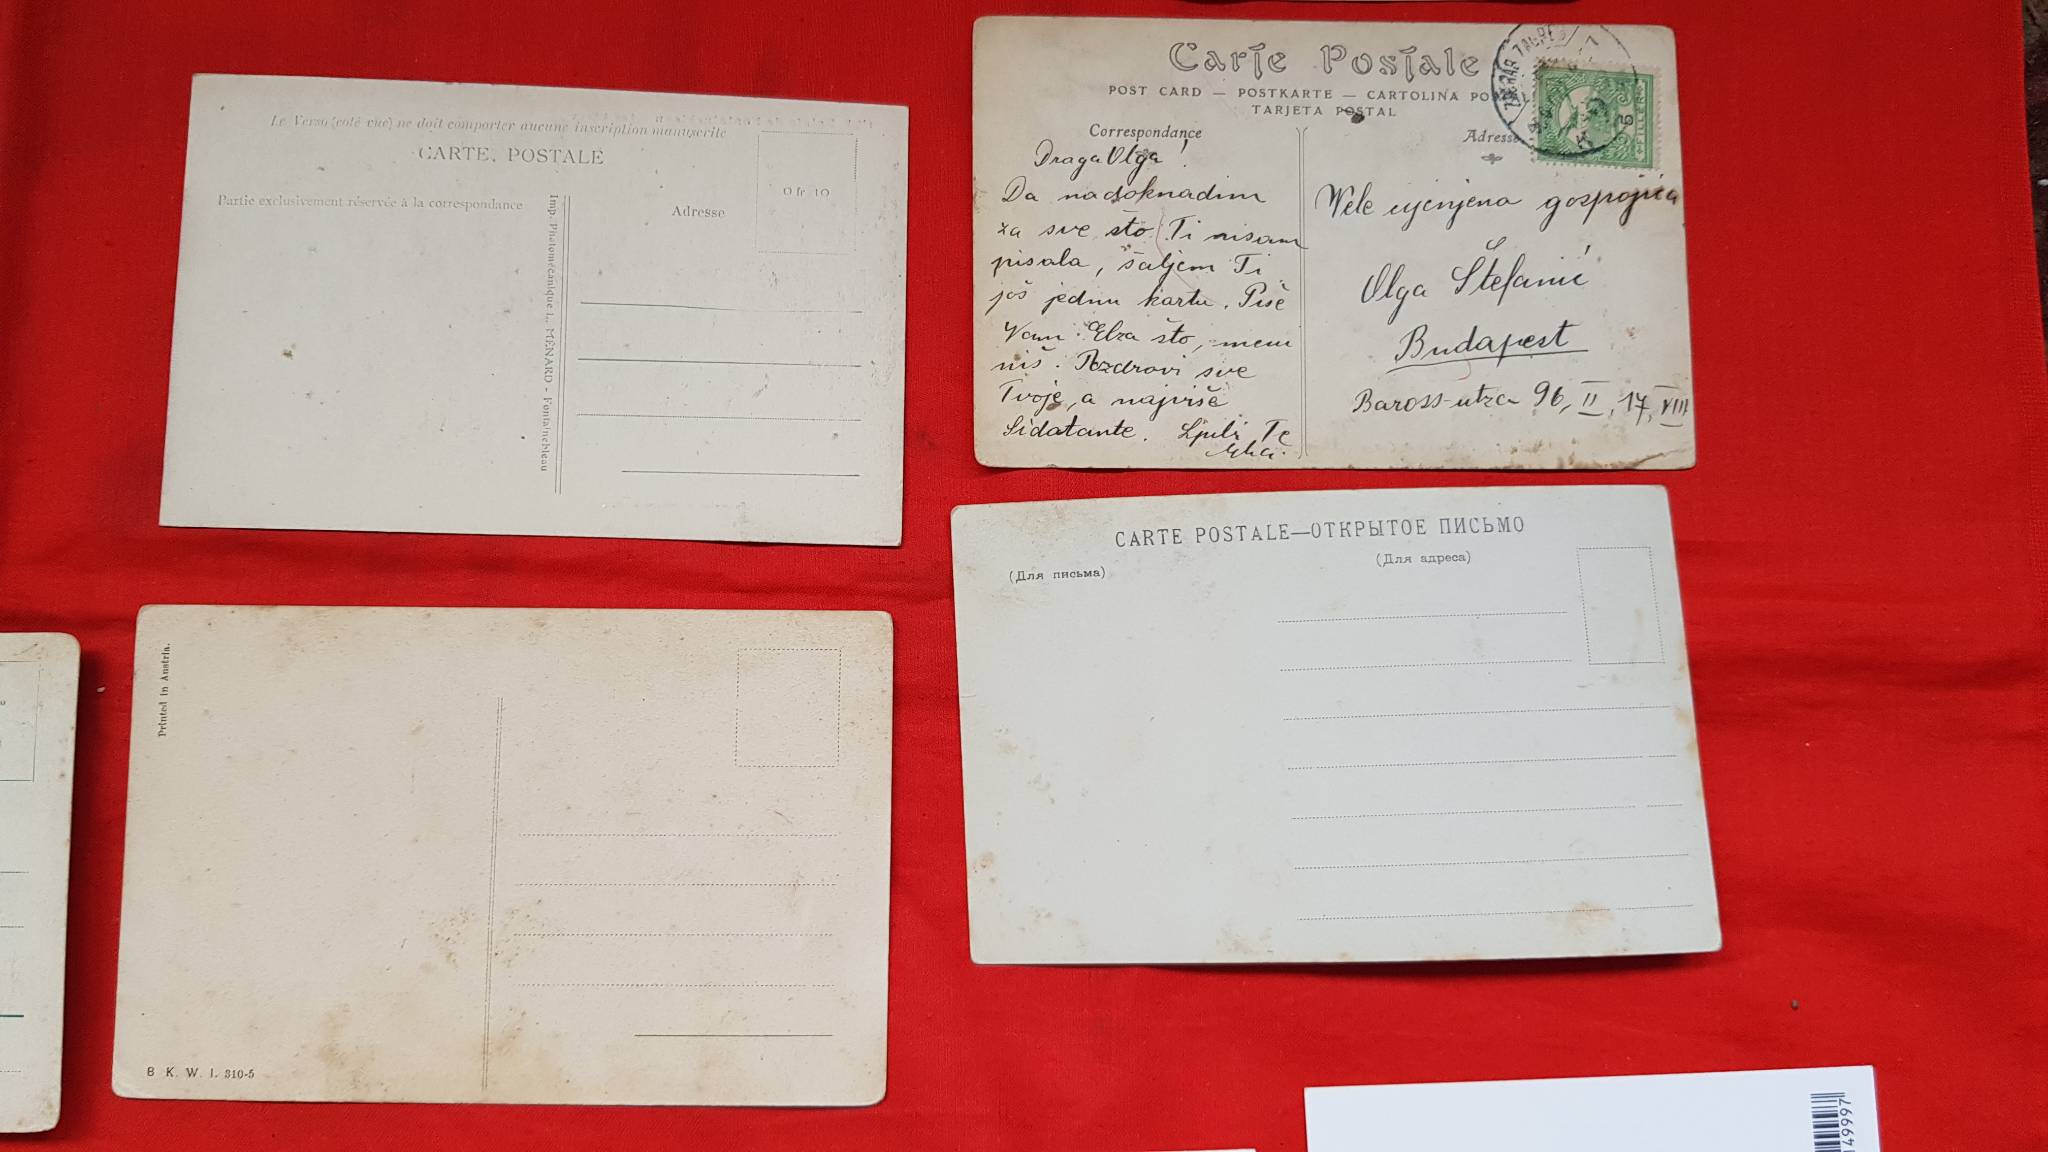 Le Verso (coté vue) ne doit comporter aucune inscription manuscrite
CARTE POSTALE
0 fr 10
Partie exclusivement réservée à la correspondance
Adresse
Imp. Photomécanique L. MÉNARD - Fontainebleau
Carte Postale
POST CARD — POSTKARTE — CARTOLINA POSTAL
TARJETA POSTAL
Correspondance
Adresse
ZAGREB
6
FILLER
Draga Olga!
Da nadoknadim
za sve što Ti nisam
pisala, šaljem Ti
još jednu kartu. Piše
Vam Elza što, meni
niš. Pozdravi sve
Tvoje, a najviše
Sidatante. Ljubi Te
Vele cijenjena gospojica
Olga Štefanić
Budapest
Baross-utza 96, II, 17, VIII
CARTE POSTALE—ОТКРЫТОЕ ПИСЬМО
(Для письма)
(Для адреса)
Printed in Austria.
B. K. W. I. 310-5
49997